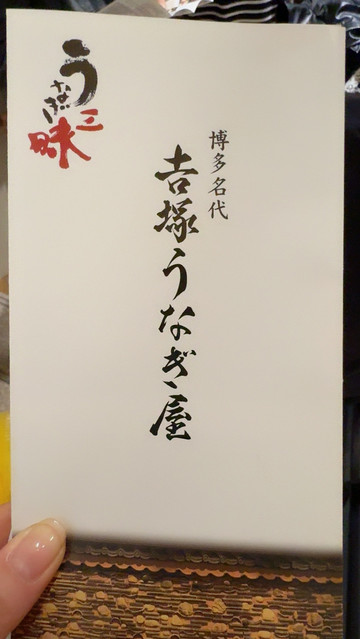 博多名代
吉塚うなぎ屋
うなぎ三昧